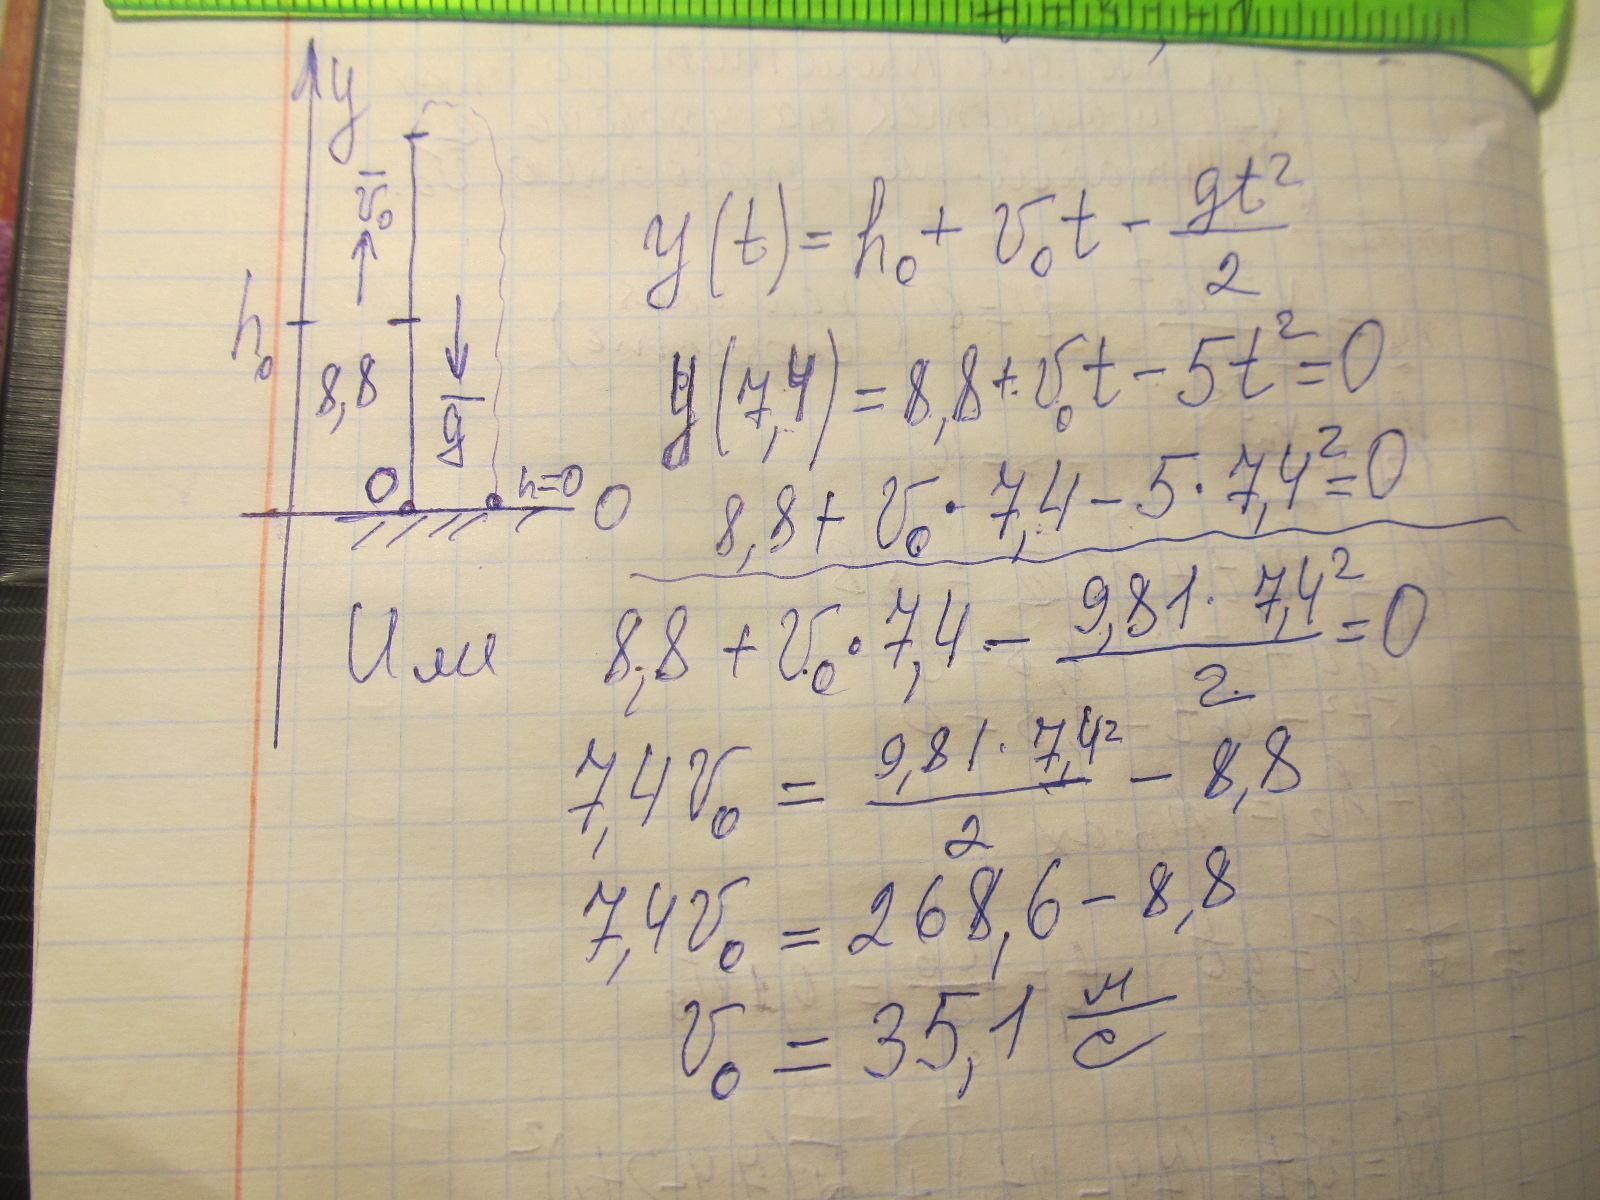 y
v̄₀
h₀
8,8
ḡ
0
h=0
0
y(t) = h₀ + v₀t - gt²/2
y(7,4) = 8,8 + v₀t - 5t² = 0
8,8 + v₀ · 7,4 - 5 · 7,4² = 0
Или 8,8 + v₀ · 7,4 - 9,81 · 7,4²/2 = 0
7,4v₀ = 9,81 · 7,4²/2 - 8,8
7,4v₀ = 268,6 - 8,8
v₀ = 35,1 м/с